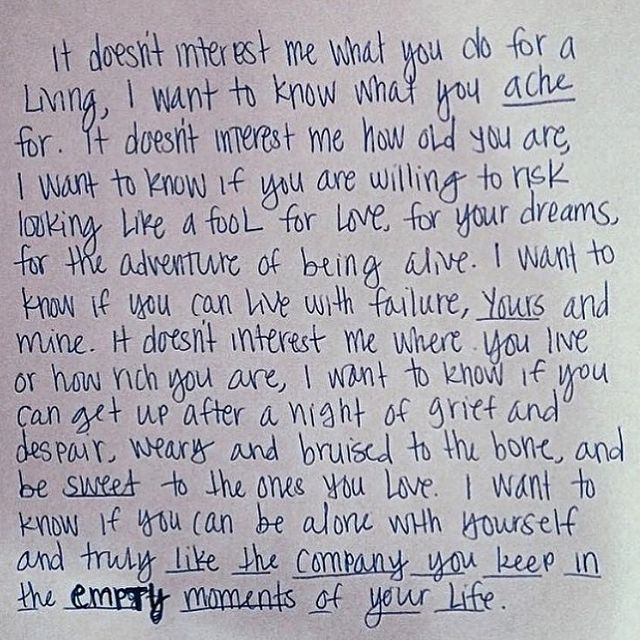 It doesn't interest me what you do for a
Living, I want to know what you ache
for. It doesn't interest me how old you are,
I want to know if you are willing to risk
looking like a fool for love, for your dreams,
for the adventure of being alive. I want to
know if you can live with failure, yours and
mine. It doesn't interest me where you live
or how rich you are, I want to know if you
can get up after a night of grief and
despair, weary and bruised to the bone, and
be sweet to the ones you love. I want to
know if you can be alone with yourself
and truly like the company you keep in
the empty moments of your life.